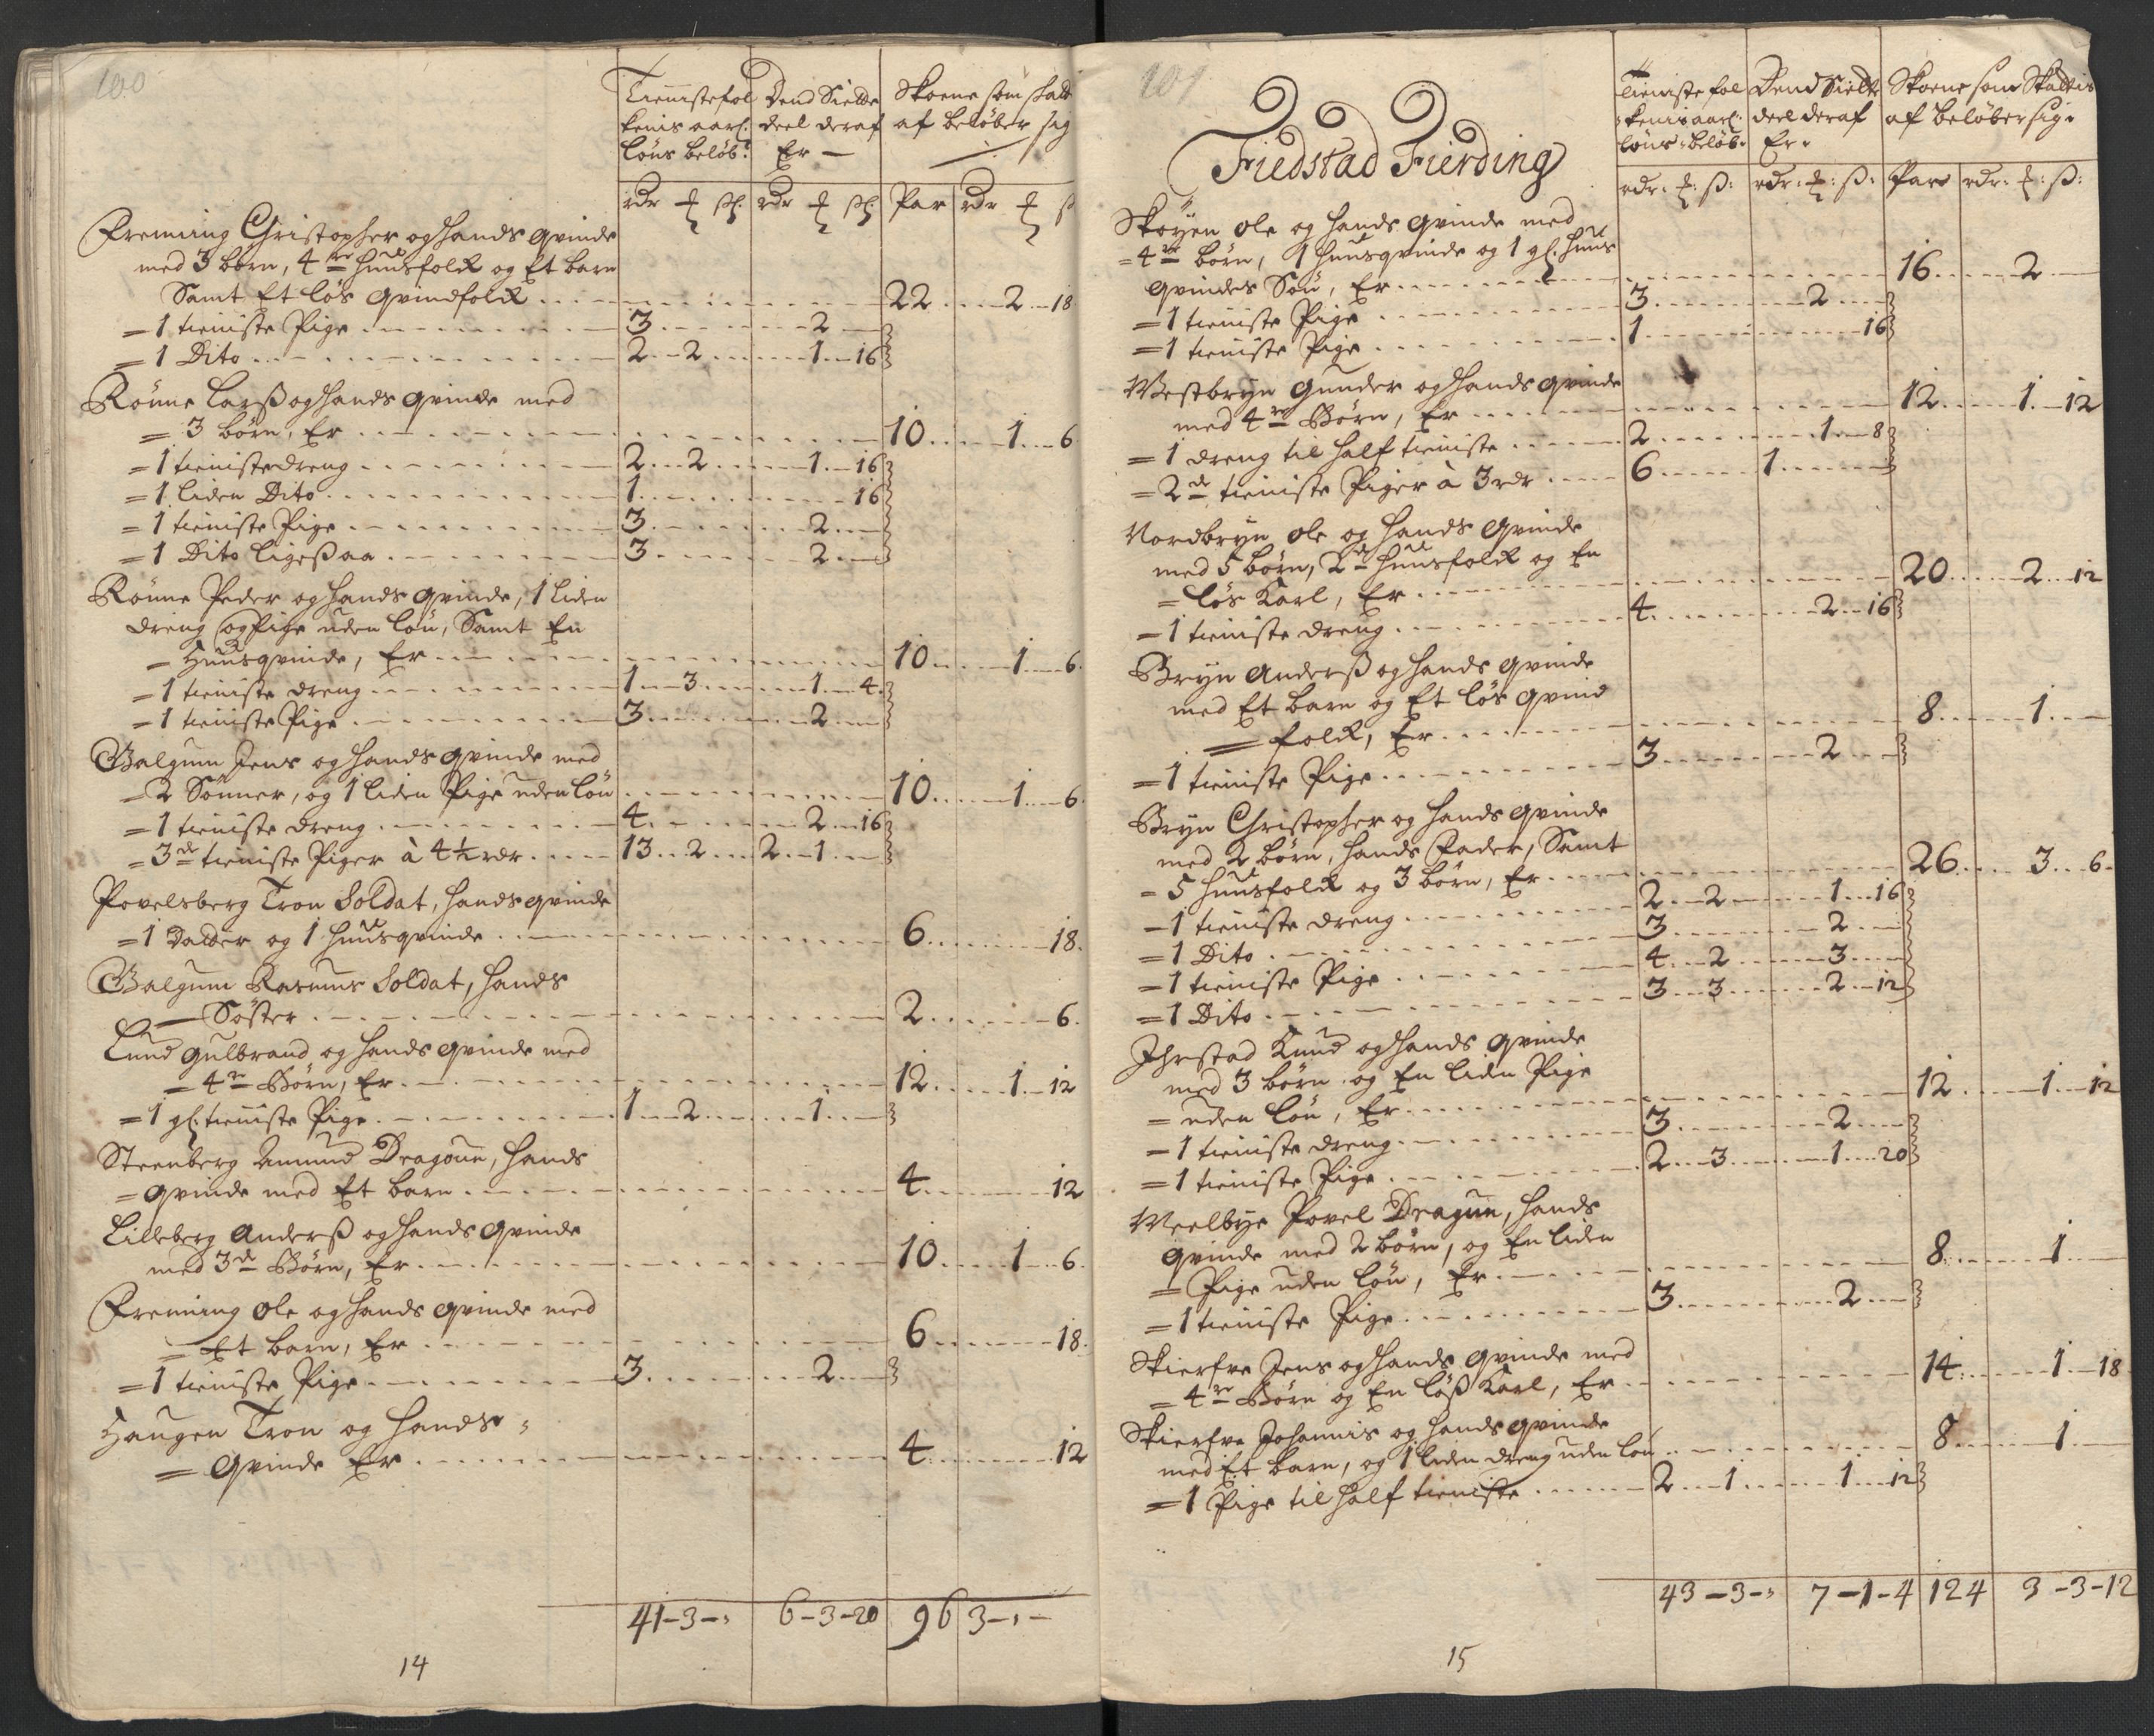 100
Tiennistefol
kenis aarl:
löns beløb:
Dend Siette
deel deraf
Er —
Skoene som skatt
af beløber sig
rdr ₰ sk: rdr ₰ sk: Par rdr ₰ s
Freming Christopher og hands qvinde
med 3 børn, 4re huusfolck og Et barn
Samt Et løs qvindfolck . . . 22 . . . 2 . . 18
= 1 tieniste Pige . . . 3 . . . 2 . .
= 1 Dito . . . 2 . . 2 . . . 1 . . 16
Rönne Larß og hands qvinde med
= 3 børn, Er . . . 10 . . . 1 . . 6
= 1 tienistedreng . . . 2 . . 2 . . . 1 . . 16
= 1 liden Dito . . . 1 . . . 16
= 1 tieniste Pige . . . 3 . . . 2 . .
= 1 Dito ligeßaa . . . 3 . . . 2 . .
Rönne Peder og hands qvinde, 1 liden
dreng og Pige uden løn, Samt En
= Huusqvinde, Er . . . 10 . . . 1 . . 6
= 1 tieniste dreng . . . 1 . . 3 . . . 1 . . 4
= 1 tieniste Pige . . . 3 . . . 2 . .
Galgum Jens og hands qvinde med
= 2 Sønner, og 1 liden Pige uden løn . . . 10 . . . 1 . . 6
= 1 tieniste dreng . . . 4 . . . 2 . . 16
= 3de tieniste Piger à 4½ rdr . . . 13 . . 2 . . 2 . . 1 . .
Povelsberg Tron Soldat, hands qvinde
= 1 Datter og 1 huusqvinde . . . 6 . . . 18
Galgum Rasmus Soldat, hands
= Söster . . . 2 . . . 6
Lund Gulbrand og hands qvinde med
= 4re Børn, Er . . . 12 . . . 1 . . 12
= 1 gl: tieniste Pige . . . 1 . . 2 . . . 1 . .
Steenberg Amund Dragoun, hands
= qvinde med Et barn . . . 4 . . . 12
Lilleberg Anderß og hands qvinde
med 3de Børn, Er . . . 10 . . . 1 . . 6
Freming Ole og hands qvinde med
= Et barn, Er . . . 6 . . . 18
= 1 tieniste Pige . . . 3 . . . 2 . .
Haugen Tron og hands =
= qvinde Er . . . 4 . . . 12
41 - 3 - , 6 - 3 - 20 96 3 - , -
14
101
Fiedstad Fierding
Tieniste fol
kenis aarl:
løns beløb.
Dend Siette
deel deraf
Er.
Skoene som Skattis
af beløber sig.
rdr. ₰: ß: rdr: ₰: ß: Par rdr: ₰: ß:
Skøyen Ole og hands qvinde med
= 4re børn, 1 huusqvinde og 1 gl: huus
qvindes Søn, Er . . . 16 . . . 2 . .
= 1 tieniste Pige . . . 3 . . . 2 . .
= 1 tieniste Pige . . . 1 . . . 16
Westbryn Gunder og hands qvinde
med 4re Børn, Er . . . 12 . . . 1 . . 12
= 1 dreng til half tieniste . . . 2 . . . 1 . . 8
= 2de tieniste Piger à 3 rdr . . . 6 . . . 1 . . .
Nordbryn Ole og hands qvinde
med 5 børn, 2de huusfolck og En
= løs Karl, Er . . . 20 . . . 2 . . 12
= 1 tieniste dreng . . . 4 . . . 2 . . 16
Bryn Anderß og hands qvinde
med Et barn og Et løs qvind
= folck, Er . . . 8 . . . 1 . .
= 1 tieniste Pige . . . 3 . . . 2 . .
Bryn Christopher og hands qvinde
med 2 børn, hands Fader, Samt
= 5 huusfolck og 3 børn, Er . . . 26 . . . 3 . . 6
= 1 tieniste dreng . . . 2 . . 2 . . . 1 . . 16
= 1 Dito . . . 3 . . . 2 . .
= 1 tieniste Pige . . . 4 . . 2 . . . 3 . .
= 1 Dito . . . 3 . . 3 . . . 2 . . 12
Ihrstad Knud og hands qvinde
med 3 børn og En liden Pige
= uden løn, Er . . . 12 . . . 1 . . 12
= 1 tieniste dreng . . . 3 . . . 2 . .
= 1 tieniste Pige . . . 2 . . 3 . . . 1 . . 20
Weelbye Povel Dragun, hands
qvinde med 2 børn, og En liden
= Pige uden løn, Er . . . 8 . . . 1 . .
= 1 tieniste Pige . . . 3 . . . 2 . .
Skierfve Jens og hands qvinde med
= 4re Børn og En løß Karl, Er . . . 14 . . . 1 . . 18
Skierfve Johannis og hands qvinde
med Et barn, og 1 liden dreng uden løn . . . 8 . . . 1 . .
= 1 Pige til half tieniste . . . 2 . . 1 . . . 1 . . 12
43 - 3 - , 7 - 1 - 4 124 3 - 3 - 12
15